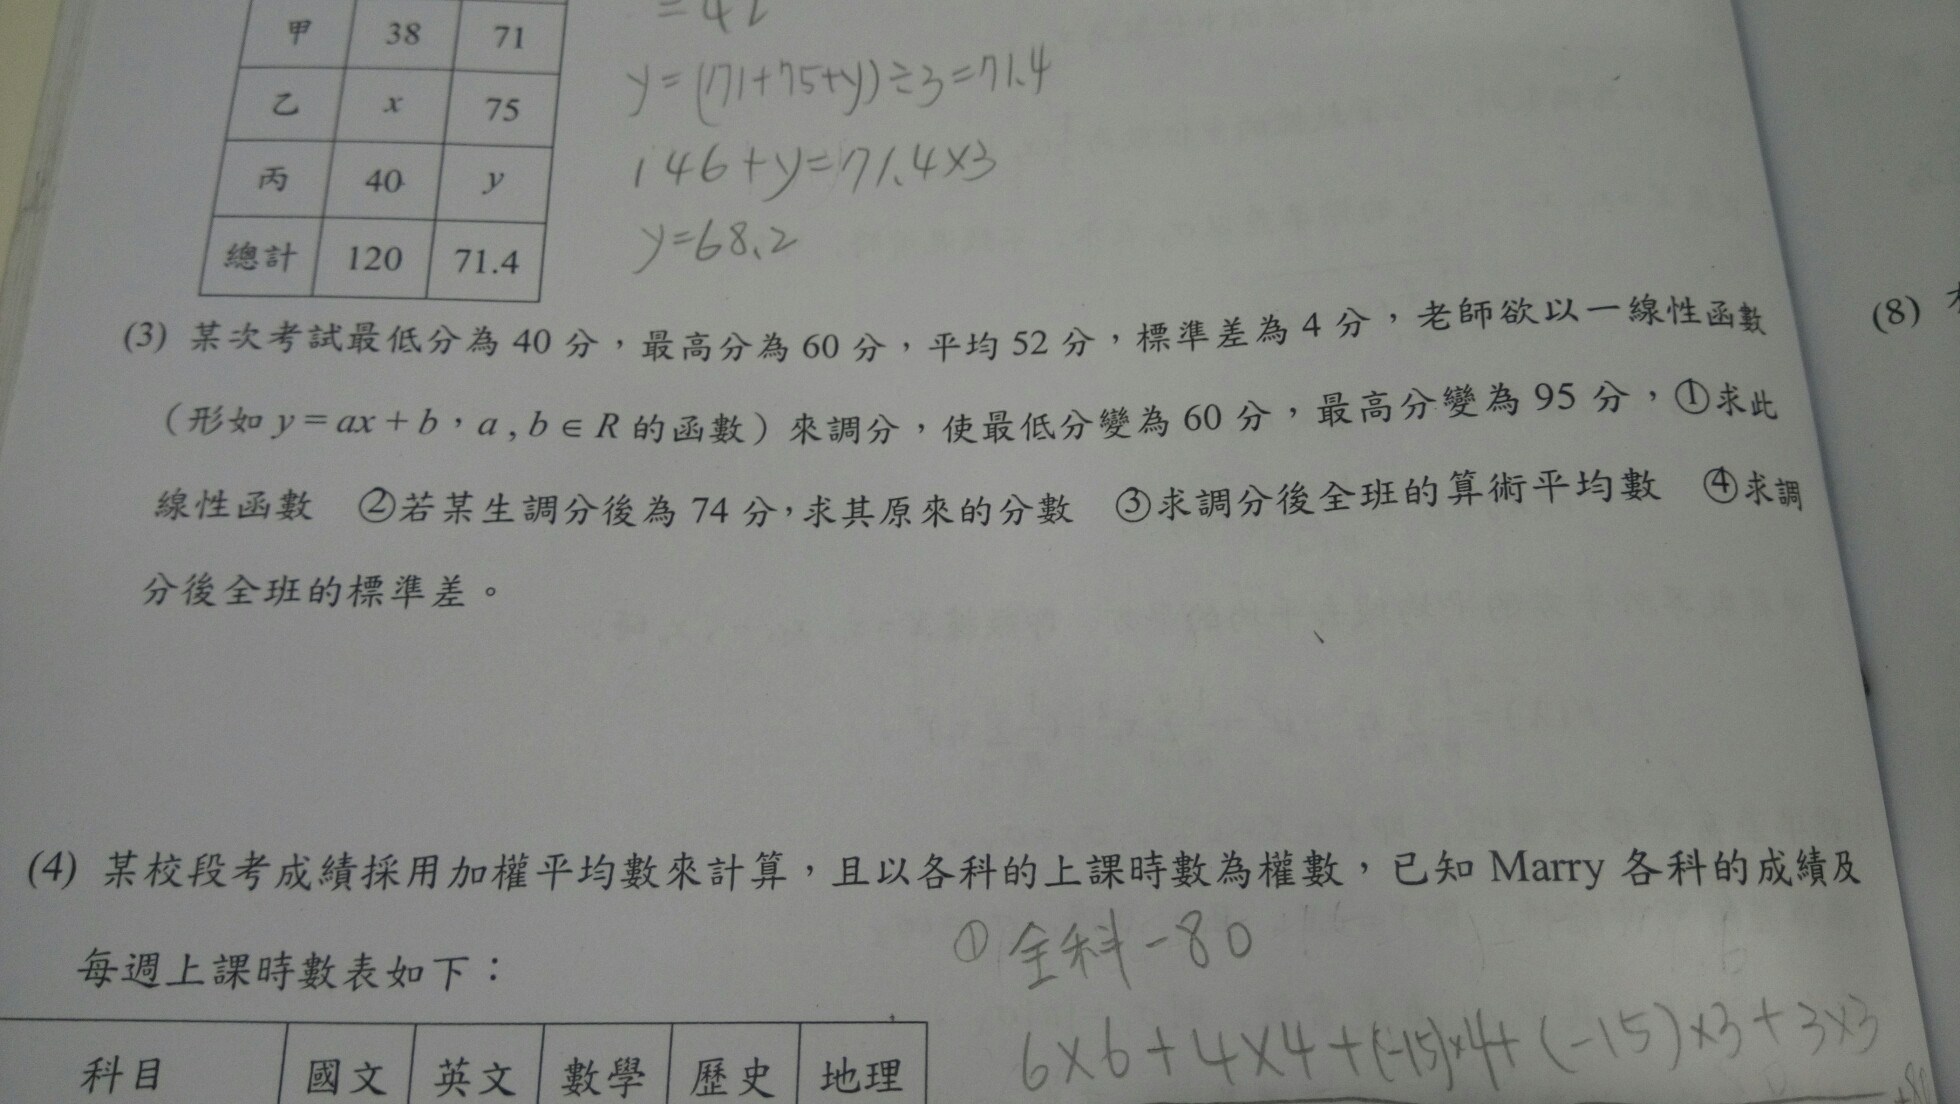 = 42
甲 38 71
y=(171+75+y)÷3=71.4
乙 x 75
146+y=71.4×3
丙 40 y
y=68.2
總計 120 71.4
(3) 某次考試最低分為 40 分，最高分為 60 分，平均 52 分，標準差為 4 分，老師欲以一線性函數
（形如 y = ax + b，a , b ∈ R 的函數）來調分，使最低分變為 60 分，最高分變為 95 分，①求此
線性函數 ②若某生調分後為 74 分，求其原來的分數 ③求調分後全班的算術平均數 ④求調
分後全班的標準差。
(8)
(4) 某校段考成績採用加權平均數來計算，且以各科的上課時數為權數，已知 Marry 各科的成績及
每週上課時數表如下：
①全科-80
6×6+4×4+(-15)×4+(-15)×3+3×3
科目 國文 英文 數學 歷史 地理